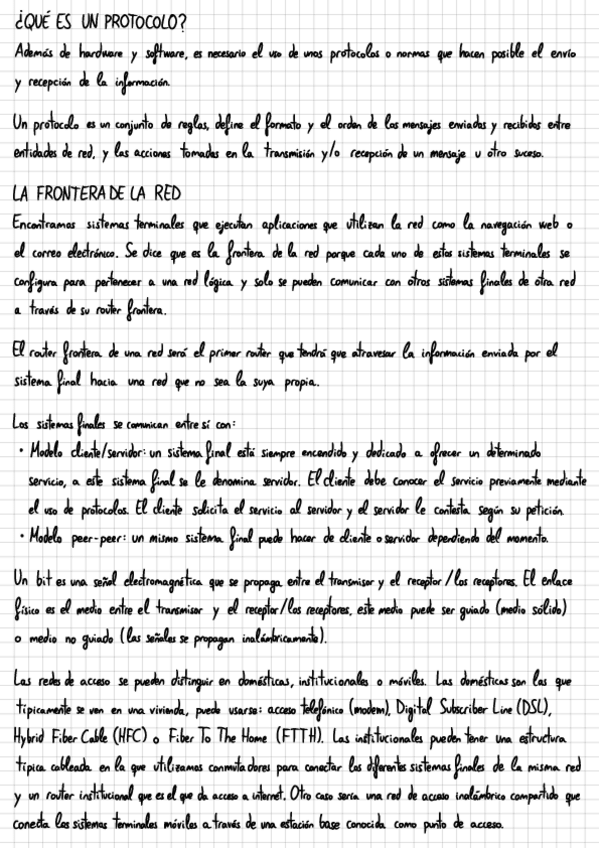 ¿QUÉ ES UN PROTOCOLO?
Además de hardware y software, es necesario el uso de unos protocolos o normas que hacen posible el envío
y recepción de la información.
Un protocolo es un conjunto de reglas, define el formato y el orden de los mensajes enviados y recibidos entre
entidades de red, y las acciones tomadas en la transmisión y/o recepción de un mensaje u otro suceso.
LA FRONTERA DE LA RED
Encontramos sistemas terminales que ejecutan aplicaciones que utilizan la red como la navegación web o
el correo electrónico. Se dice que es la frontera de la red porque cada uno de estos sistemas terminales se
configura para pertenecer a una red lógica y solo se pueden comunicar con otros sistemas finales de otra red
a través de su router frontera.
El router frontera de una red será el primer router que tendrá que atravesar la información enviada por el
sistema final hacia una red que no sea la suya propia..
Los sistemas finales se comunican entre sí con:
• Modelo cliente/servidor: un sistema final está siempre encendido y dedicado a ofrecer un determinado
servicio, a este sistema final se le denomina servidor. El cliente debe conocer el servicio previamente mediante
el uso de protocolos. El cliente solicita el servicio al servidor y el servidor le contesta según su petición
• Modelo peer-peer: un mismo sistema final puede hacer de cliente o servidor dependiendo del momento.
Un bit es una señal electromagnética que se propaga entre el transmisor y el receptor/los receptores. El enlace
físico es el medio entre el transmisor y el receptor/los receptores, este medio puede ser guiado (medio sólido)
o medio no guiado (las señales se propagan inalámbricamente).
Las redes de acceso se pueden distinguir en domésticas, institucionales o móviles. Las domésticas son las que
típicamente se ven en una vivienda, puede usarse: acceso telefónico (modem), Digital Subscriber Line (DSL),
Hybrid Fiber Cable (HFC) o Fiber To The Home (FTTH). Las institucionales pueden tener una estructura
típica cableada en la que utilizamos conmutadores para conectar los diferentes sistemas finales de la misma red
y un router institucional que es el que da acceso a internet. Otro caso sería una red de acceso inalámbrico compartido que
conecta los sistemas terminales móviles a través de una estación base conocida como punto de acceso.